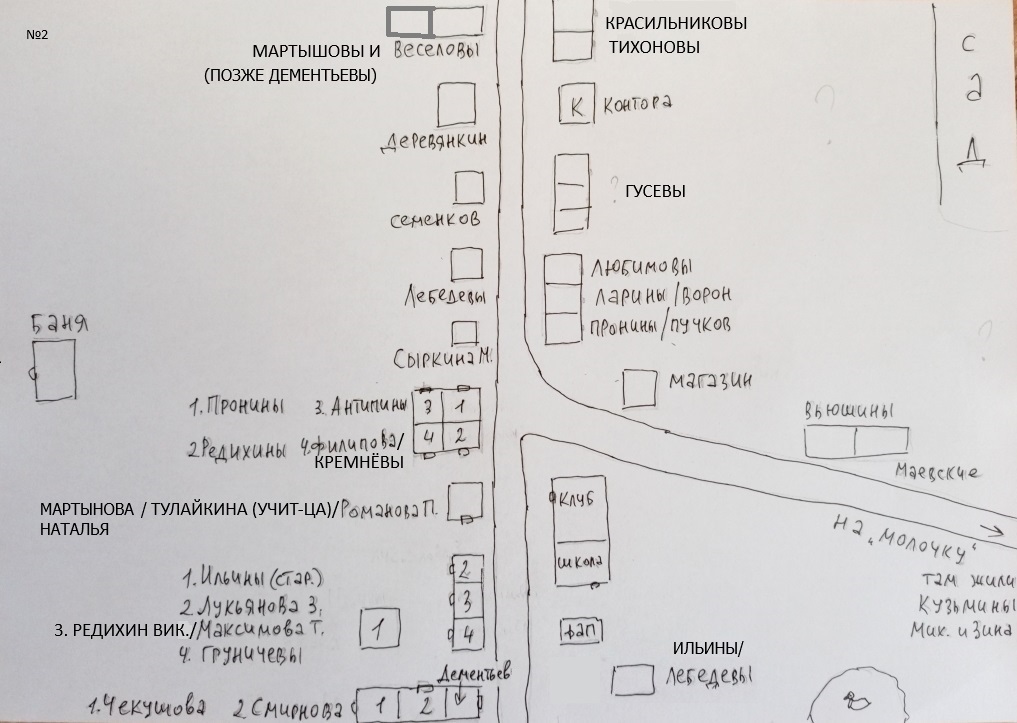 №2
МАРТЫШОВЫ И ВЕСЕЛОВЫ
(ПОЗЖЕ ДЕМЕНТЬЕВЫ)
КРАСИЛЬНИКОВЫ
ТИХОНОВЫ
САД
К КОНТОРА
ДЕРЕВЯНКИН
? ГУСЕВЫ
СЕМЕНКОВ
ЛЮБИМОВЫ
ЛАРИНЫ/ВОРОН
ПРОНИНЫ/ПУЧКОВ
ЛЕБЕДЕВЫ
БАНЯ
СЫРКИНА М.
МАГАЗИН
1. ПРОНИНЫ 3. АНТИПИНЫ 3 1
2 РЕДИХИНЫ 4. ФИЛИПОВА/ 4 2
КРЕМНЁВЫ
ВЬЮШИНЫ
МАЕВСКИЕ
МАРТЫНОВА / ТУЛАЙКИНА (УЧИТ-ЦА)/РОМАНОВА П.
НАТАЛЬЯ
КЛУБ
ШКОЛА
НА „МОЛОЧКУ“
ТАМ ЖИЛИ
КУЗЬМИНЫ
МИХ. И ЗИНА
1. ИЛЬИНЫ (СТАР.) 2
2 ЛУКЬЯНОВА З. 3
3. РЕДИХИН ВИК./МАКСИМОВА Т. 1 4
4. ГРУНИЧЕВЫ
ФАП
ИЛЬИНЫ/
ЛЕБЕДЕВЫ
ДЕМЕНТЬЕВ
1. ЧЕКУШОВА 2 СМИРНОВА 1 2